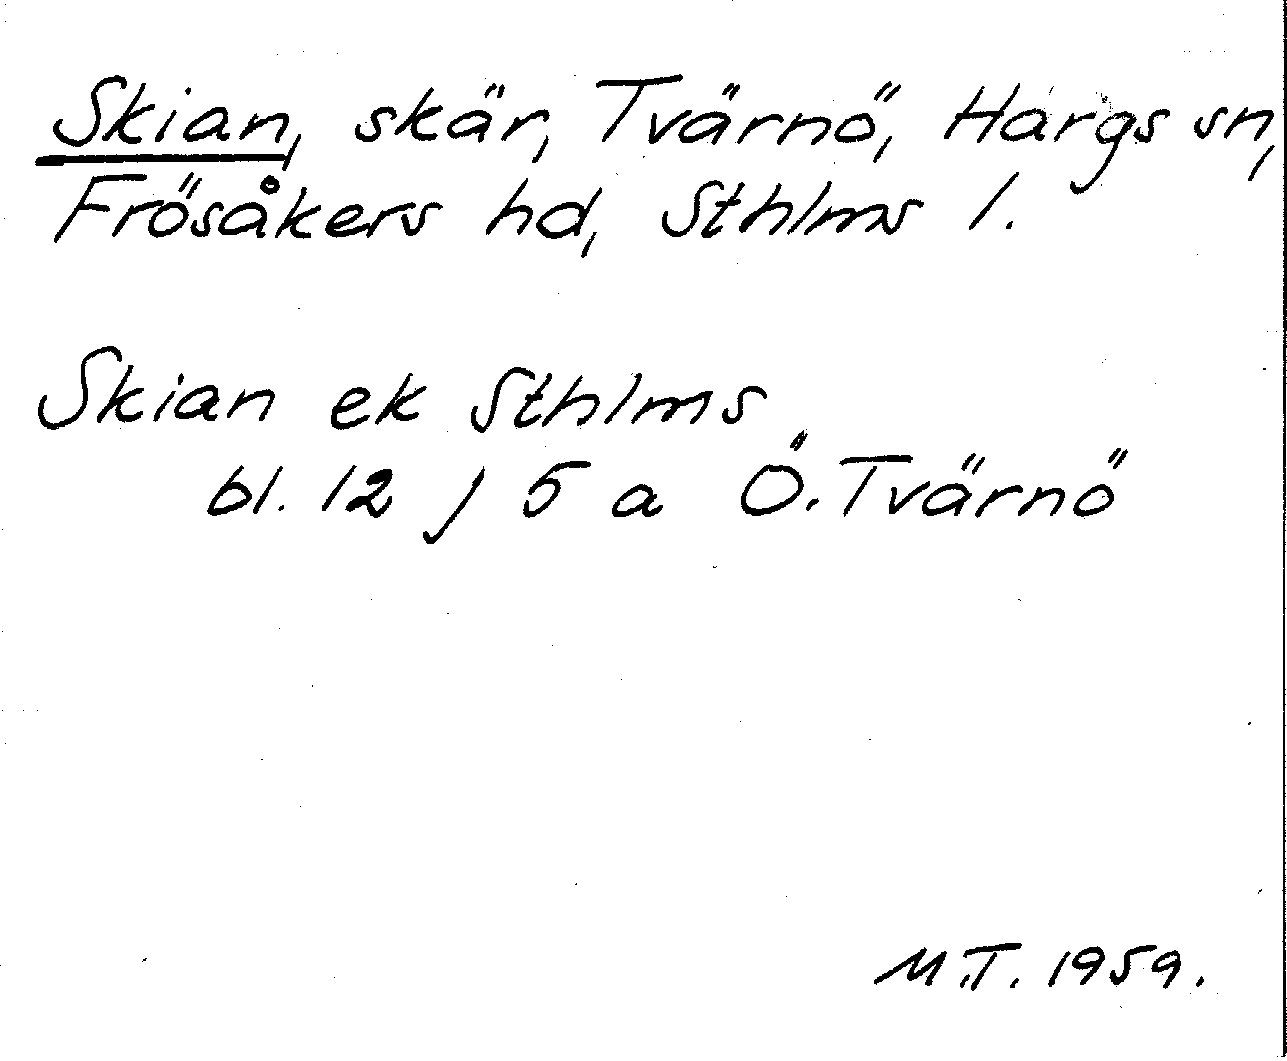 Skian, skär, Tvärnö, Hargs sn,
Frösåkers hd, Sthlms l.
Skian ek Sthlms
bl. 12 j 5 a Ö. Tvärnö
M.T. 1959.